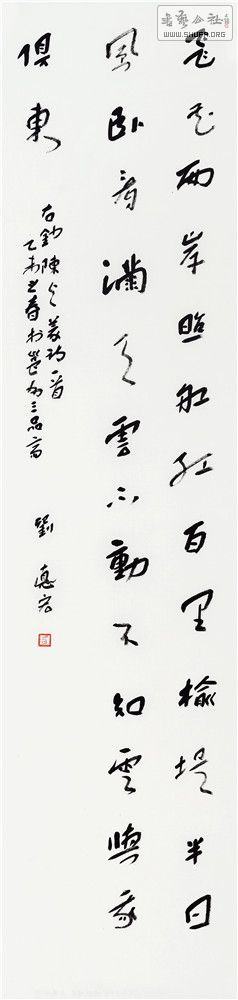 書藝公社
WWW.SHUFA.ORG
飛花兩岸照船紅百里榆堤半日
風臥看滿天雲不動不知雲與我
俱東
右鈔陳与義詩一首
乙未之春於三品斋
劉